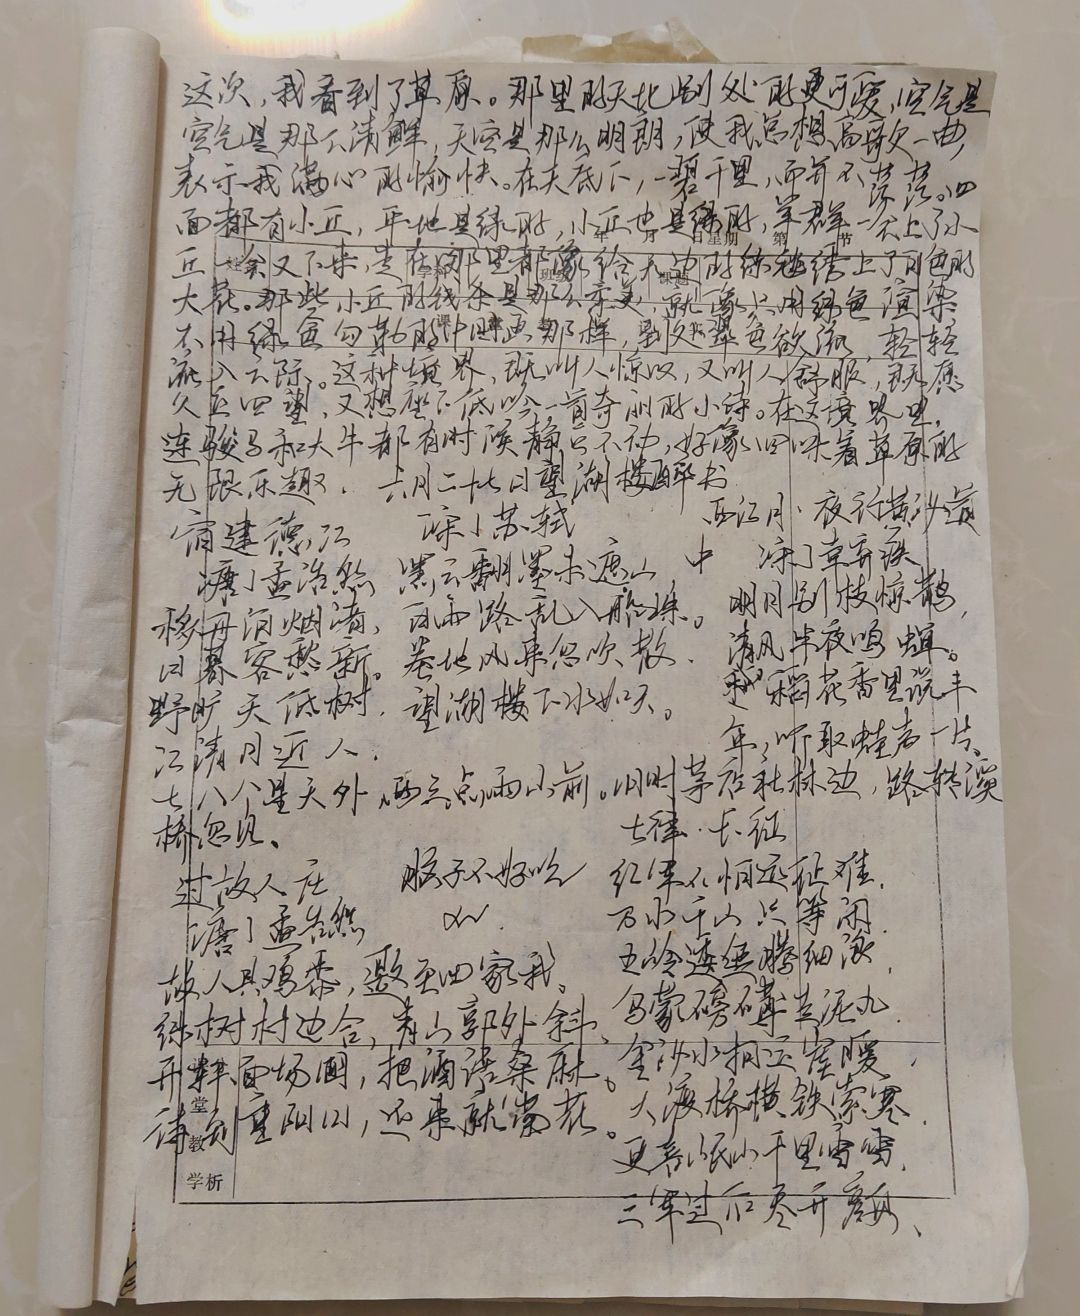 这次,我看到了草原。那里的天比别处的更可爱,空气是
空气是那么清鲜,天空是那么明朗,使我总想高歌一曲,
表示我满心的愉快。在天底下,一碧千里,而并不茫茫。四
面都有小丘,平地是绿的,小丘也是绿的,羊群一会上了小
丘一会又下来,走在哪里都像给无边的绿毯绣上了白色的
大花。那些小丘的线条是那么柔美,就像只用绿色渲染
不用绿色勾勒的中国画那样,到处翠色欲流,轻轻
流入云际。这种境界,既叫人惊叹,又叫人舒服,既愿
久立四望,又想座下低吟一首奇丽的小诗。在这境界里,
连骏马和大牛都有时候静立不动,好像回味着草原的
无限乐趣。 六月二十七日望湖楼醉书
年 月 日 星期 第 节
宿建德江
唐 孟浩然
移舟泊烟渚,
日暮客愁新。
野旷天低树,
江清月近人.
宋 苏轼
黑云翻墨未遮山
白雨跳乱入船珠。
卷地风来忽吹散.
望湖楼下水如天。
西江月·夜行黄沙道
中 宋 辛弃疾
明月别枝惊鹊,
清风半夜鸣蝉。
稻花香里说丰
年,听取蛙声一片。
七八个星天外,两三点雨山前。旧时茅店社林边,路转溪
桥忽见。
过故人庄
唐 孟浩然
故人具鸡黍,邀至田家我。
绿树村边合,青山郭外斜、
开轩面场圃,把酒话桑麻。
待到重阳日,还来就菊花。
猴子不好吃
七律·长征
红军不怕远征难.
万水千山只等闲
五岭逶迤腾细浪,
乌蒙磅礴走泥丸.
金沙水拍云崖暖,
大渡桥横铁索寒.
更喜岷山千里雪,
三军过后尽开颜、
堂
教
学析